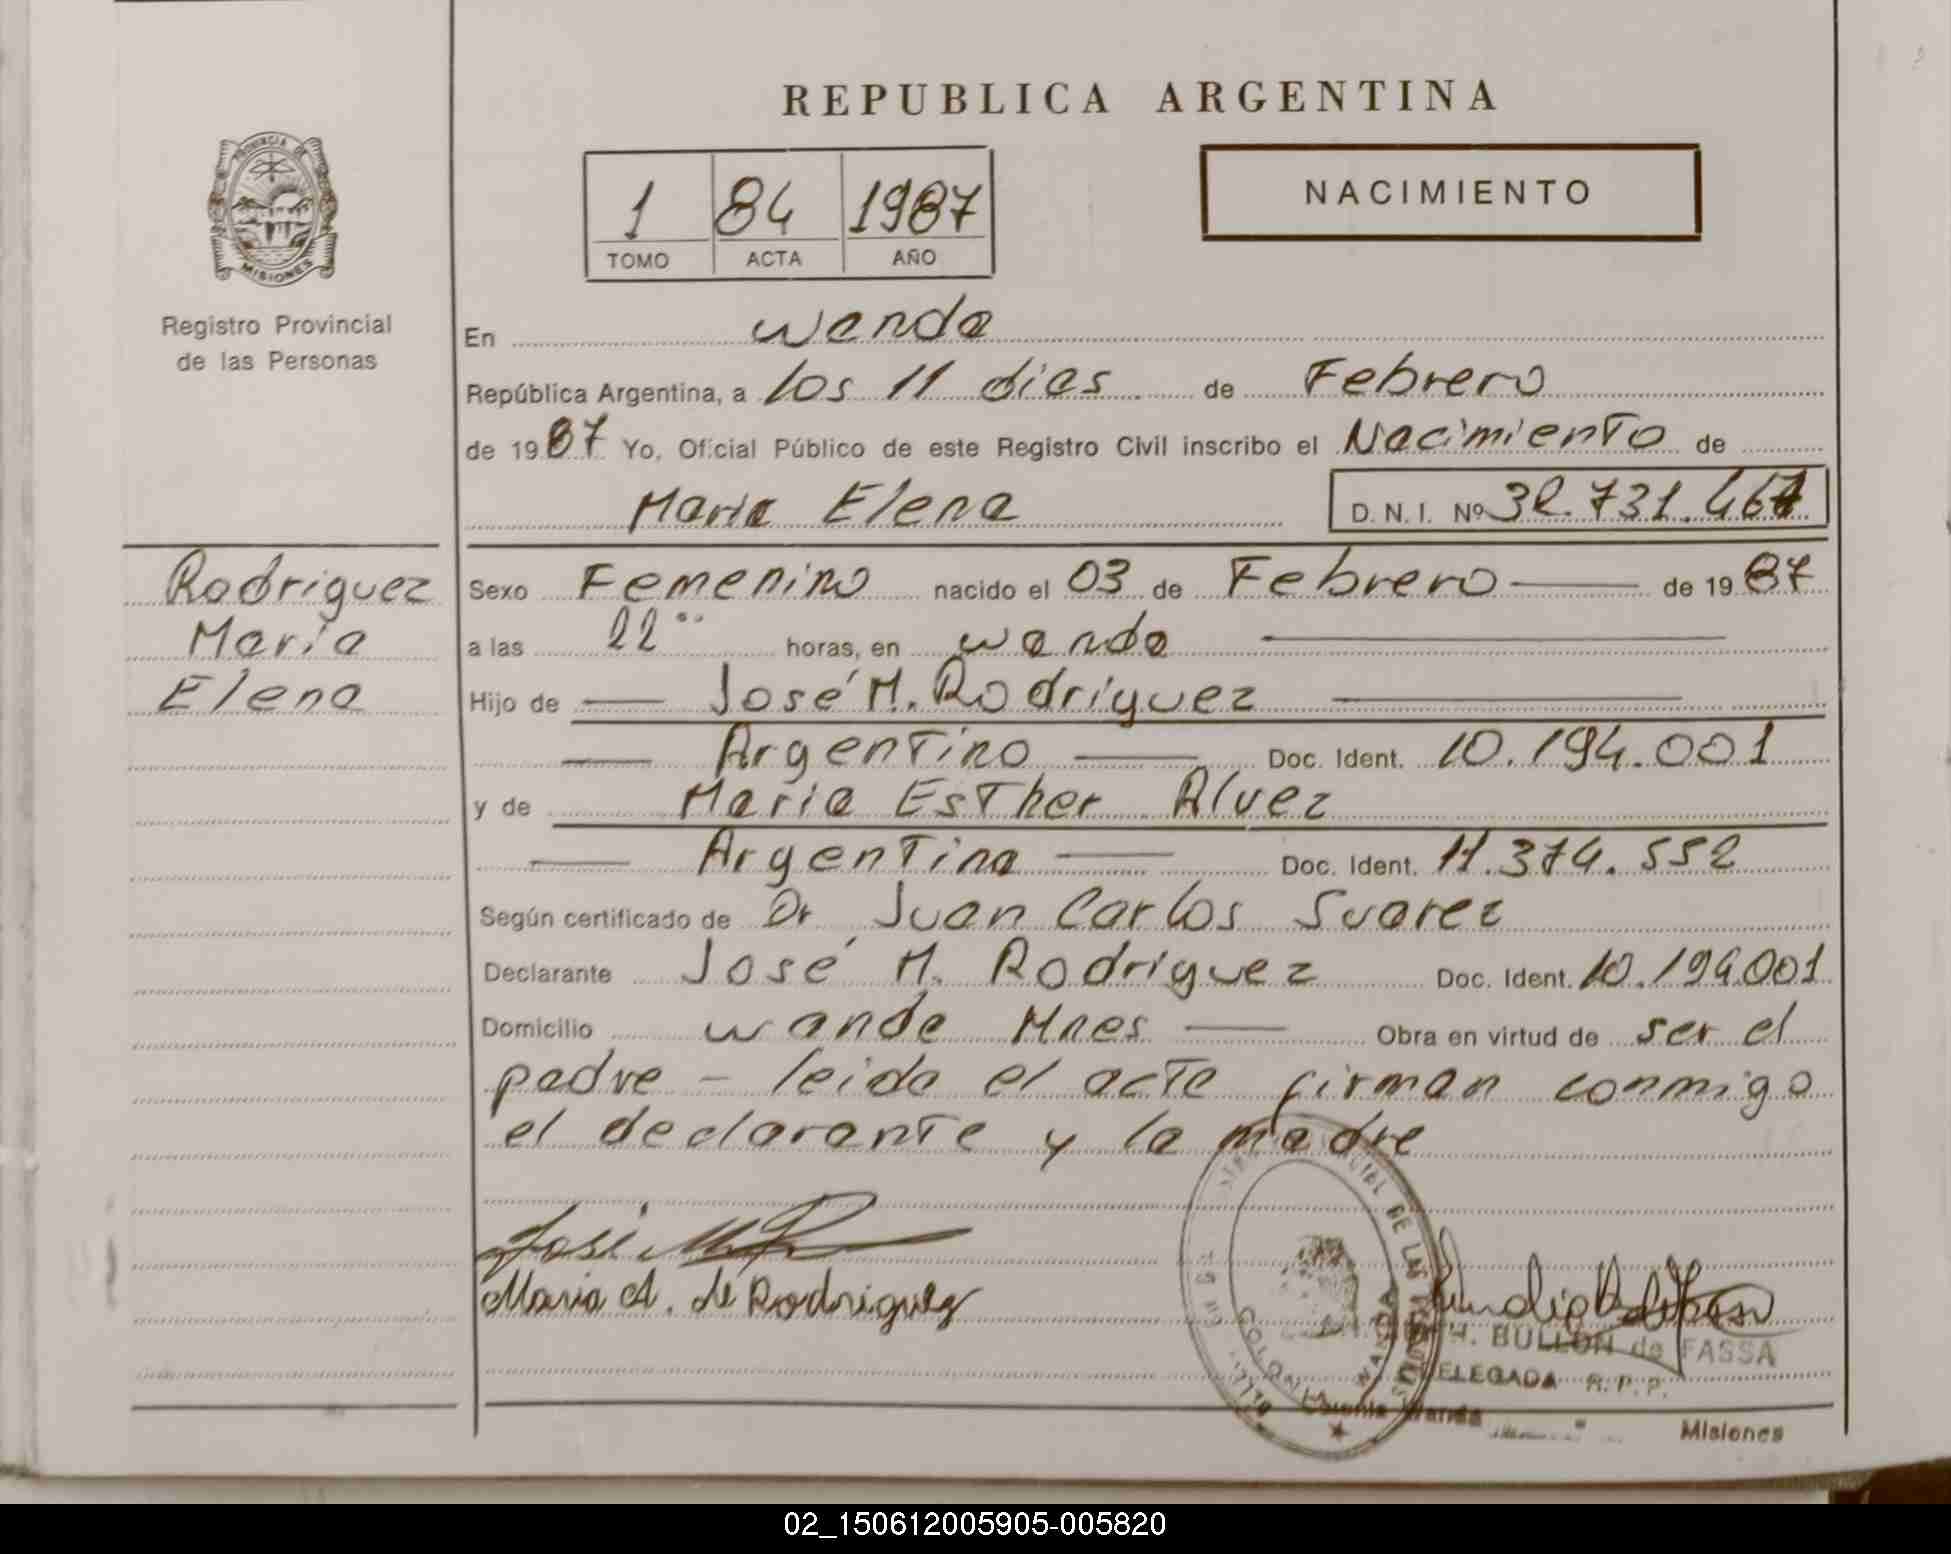 REPUBLICA ARGENTINA
PROVINCIA DE
MISIONES
Registro Provincial
de las Personas
1 84 1987
TOMO ACTA AÑO
NACIMIENTO
En Wanda
República Argentina, a los 11 dias de Febrero
de 1987 Yo, Oficial Público de este Registro Civil inscribo el Nacimiento de
Maria Elena D. N. I. Nº 32.731.461
Rodriguez
Maria
Elena
Sexo Femenino nacido el 03 de Febrero de 1987
a las 22ºº horas, en Wanda
Hijo de José M. Rodriguez
Argentino Doc. Ident. 10.194.001
y de Maria Esther Alvez
Argentina Doc. Ident. 11.374.552
Según certificado de Dr Juan Carlos Suarez
Declarante José M. Rodriguez Doc. Ident. 10.194.001
Domicilio Wanda Mnes Obra en virtud de ser el
padre - leida el acta firman conmigo
el declarante y la madre
José M R
Maria A. de Rodriguez
DE LAS
COLONIA WANDA
H. BULLON de FASSA
DELEGADA R.P.P.
Colonia Wanda Misiones
02_150612005905-005820